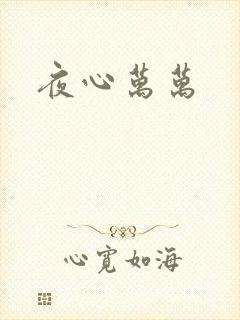 夜心萬萬
心寬如海